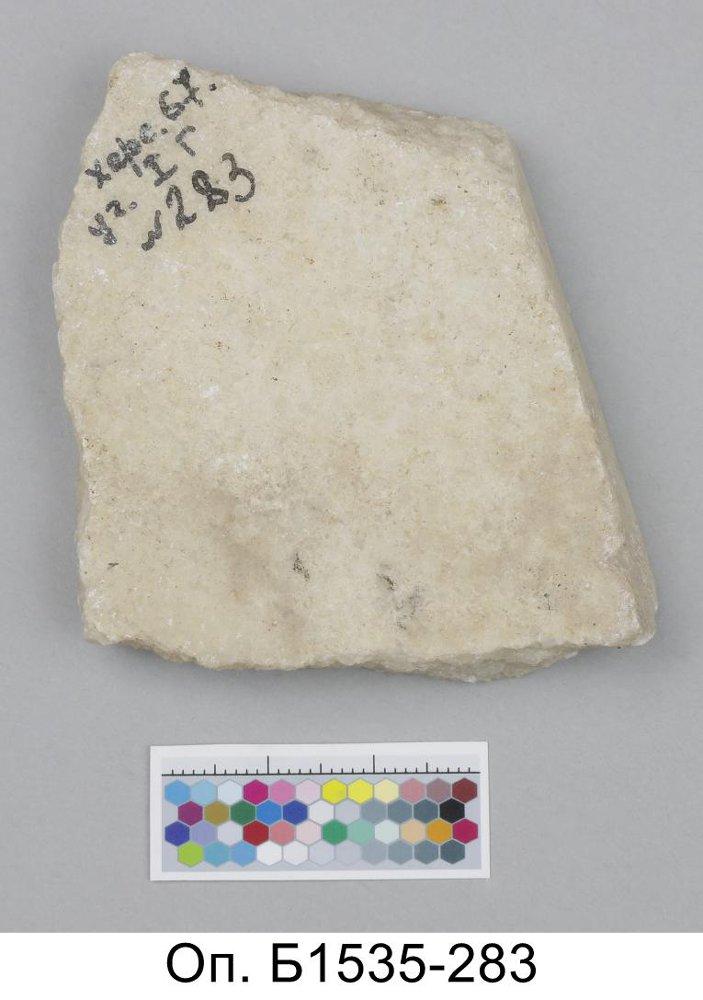 херс. 67.
уг. I г
№283
Оп. Б1535-283